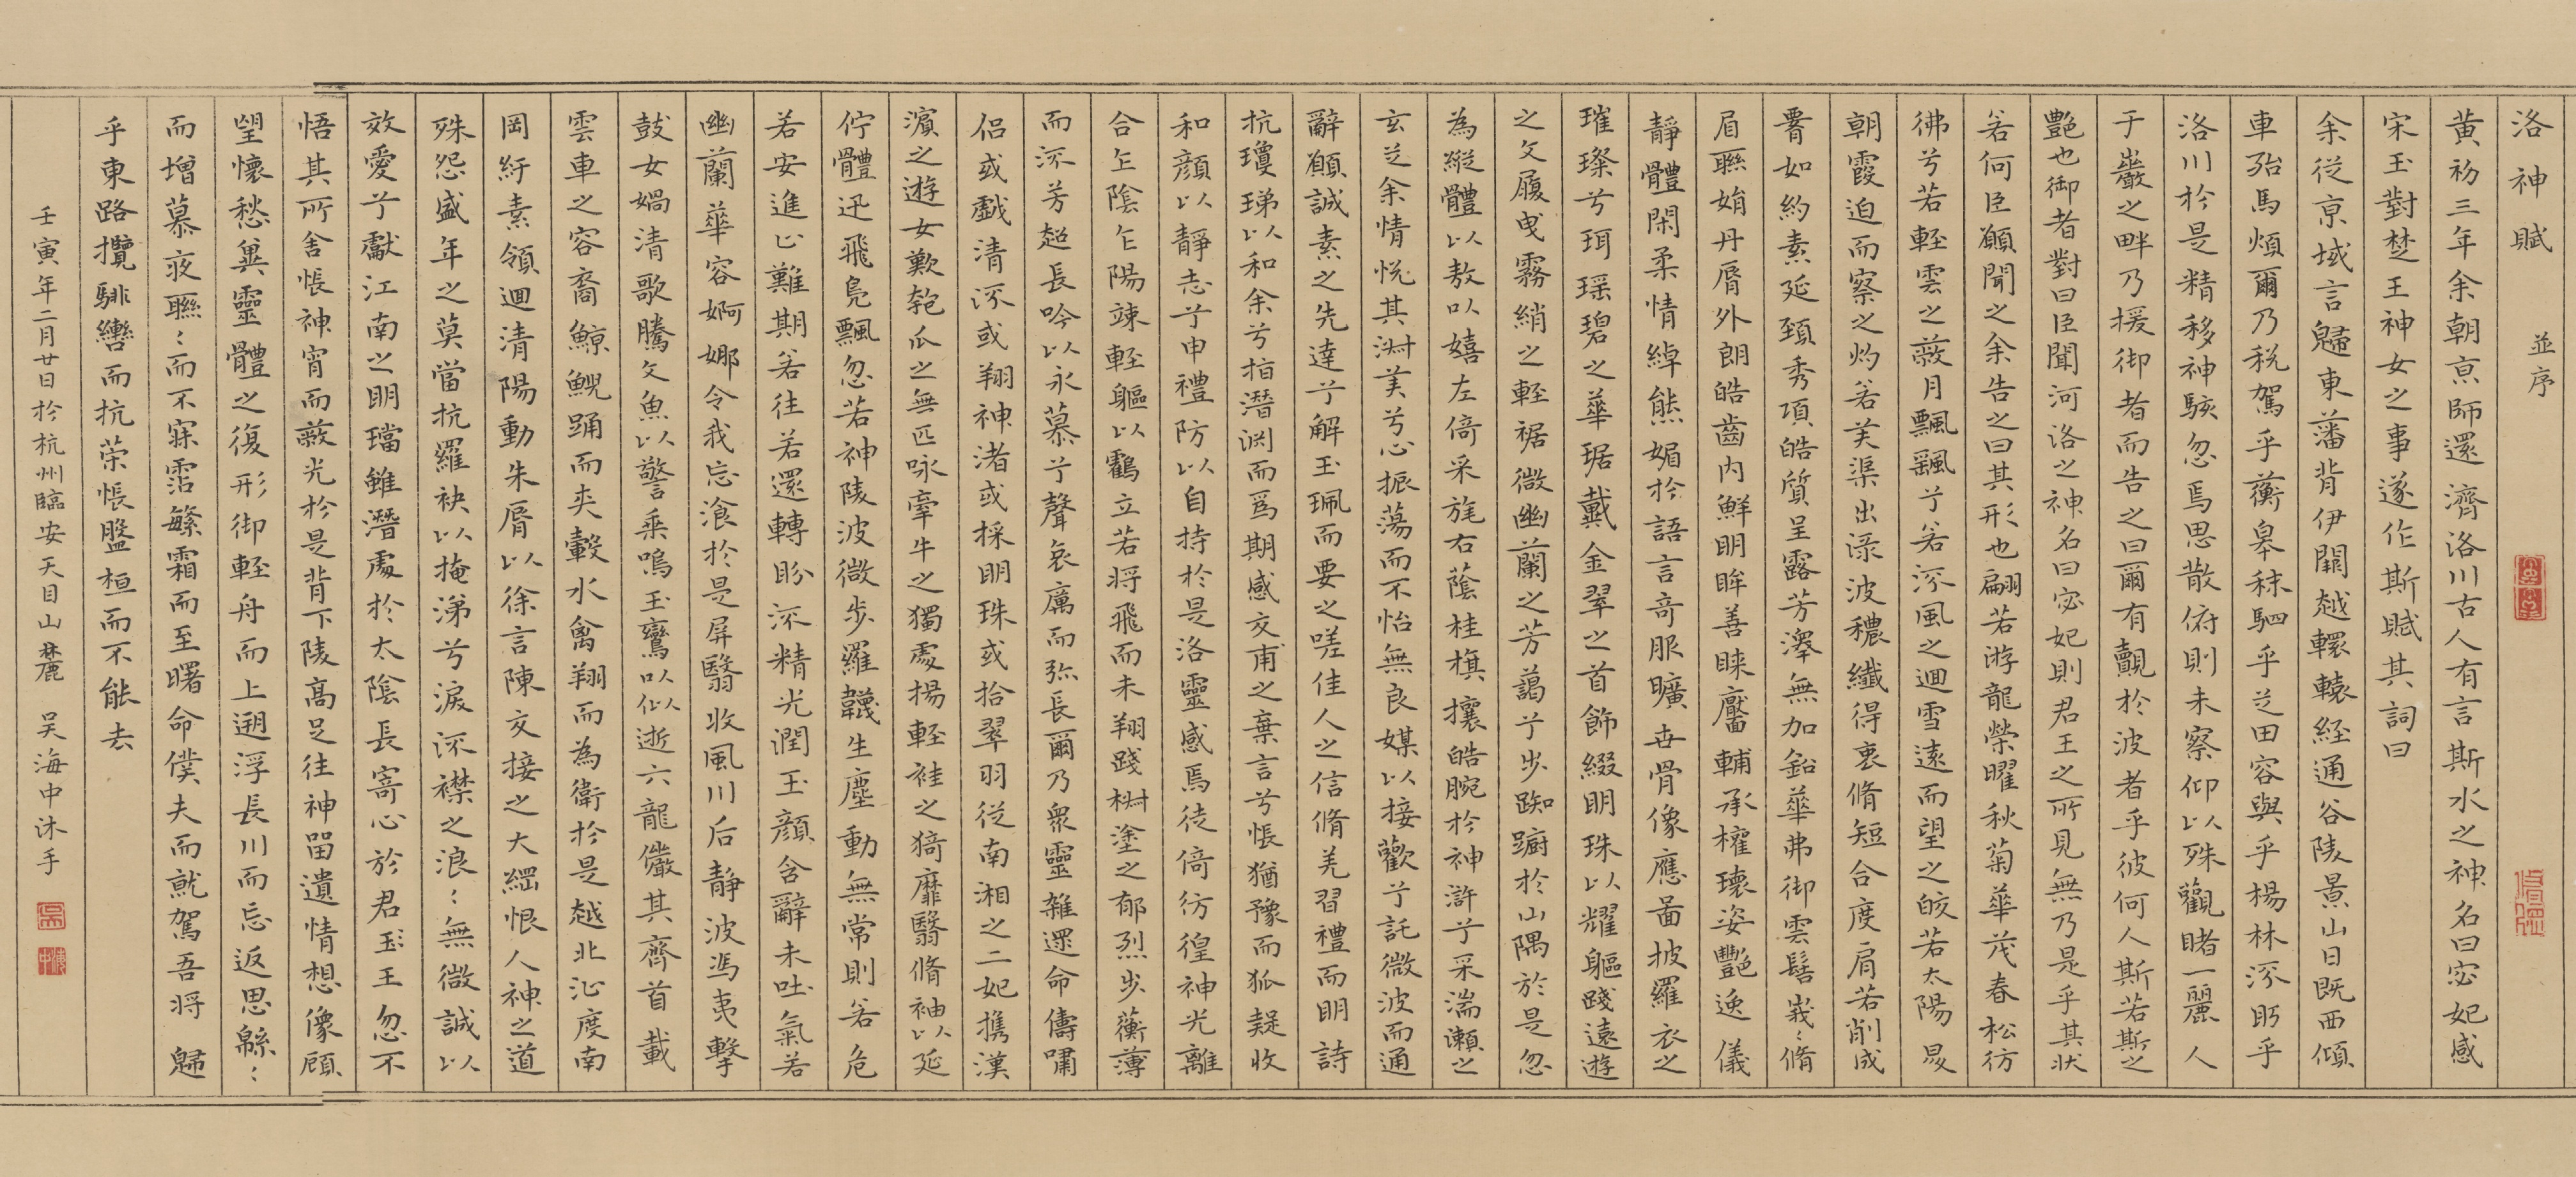 洛神賦 並序
黃初三年余朝京師還濟洛川古人有言斯水之神名曰宓妃感
宋玉對楚王神女之事遂作斯賦其詞曰
余從京域言歸東藩背伊闕越轘轅經通谷陵景山日既西傾
車殆馬煩爾乃稅駕乎蘅皋秣駟乎芝田容與乎楊林流眄乎
洛川於是精移神駭忽焉思散俯則未察仰以殊觀睹一麗人
于巖之畔乃援御者而告之曰爾有覿於波者乎彼何人斯若斯之
艷也御者對曰臣聞河洛之神名曰宓妃則君王之所見無乃是乎其狀
若何臣願聞之余告之曰其形也翩若游龍榮曜秋菊華茂春松彷
彿兮若輕雲之蔽月飄飖兮若流風之迴雪遠而望之皎若太陽昇
朝霞迫而察之灼若芙渠出淥波穠纖得衷脩短合度肩若削成
署如約素延頸秀項皓質呈露芳澤無加鉛華弗御雲髻峩〻脩
眉聯娟丹脣外朗皓齒內鮮明眸善睞靨輔承權瓌姿豔逸儀
靜體閑柔情綽態媚於語言奇服曠世骨像應圖披羅衣之
璀璨兮珥瑶碧之華琚戴金翠之首飾綴明珠以耀軀踐遠遊
之文履曳霧綃之輕裾微幽蘭之芳藹兮步踟躕於山隅於是忽
焉縱體以敖以嬉左倚采旄右蔭桂旗攘皓腕於神滸兮采湍瀨之
玄芝余情悅其淑美兮心振蕩而不怡無良媒以接歡兮託微波而通
辭願誠素之先達兮解玉珮而要之嗟佳人之信脩羌習禮而明詩
抗瓊珶以和余兮指潛淵而爲期感交甫之棄言兮悵猶豫而狐疑收
和顏以靜志兮申禮防以自持於是洛靈感焉徒倚彷徨神光離
合乍陰乍陽竦輕軀以鶴立若將飛而未翔踐椒塗之郁烈步蘅薄
而流芳超長吟以永慕兮聲哀厲而弥長爾乃衆靈雜遝命儔嘯
侶或戲清流或翔神渚或採明珠或拾翠羽從南湘之二妃攜漢
濱之遊女歎匏瓜之無匹咏牽牛之獨處揚輕袿之猗靡翳脩袖以延
佇體迅飛鳧飄忽若神陵波微步羅韈生塵動無常則若危
若安進止難期若往若還轉盼流精光潤玉顏含辭未吐氣若
幽蘭華容婀娜令我忘飡於是屏翳收風川后靜波馮夷擊
鼓女媧清歌騰文魚以警乘鳴玉鸞以偕逝六龍儼其齊首載
雲車之容裔鯨鯢踊而夾轂水禽翔而為衛於是越北沚度南
岡紆素領迴清陽動朱脣以徐言陳交接之大綱恨人神之道
殊怨盛年之莫當抗羅袂以掩涕兮淚流襟之浪〻無微誠以
效愛兮獻江南之明璫雖潛處於太陰長寄心於君王忽不
悟其所舍悵神宵而蔽光於是背下陵高足往神留遺情想像顧
望懷愁冀靈體之復形御輕舟而上遡浮長川而忘返思緜〻
而增慕夜聯〻而不寐霑繁霜而至曙命僕夫而就駕吾將歸
乎東路攬騑轡而抗策悵盤桓而不能去
壬寅年二月廿日於杭州臨安天目山麓 吴海中沐手